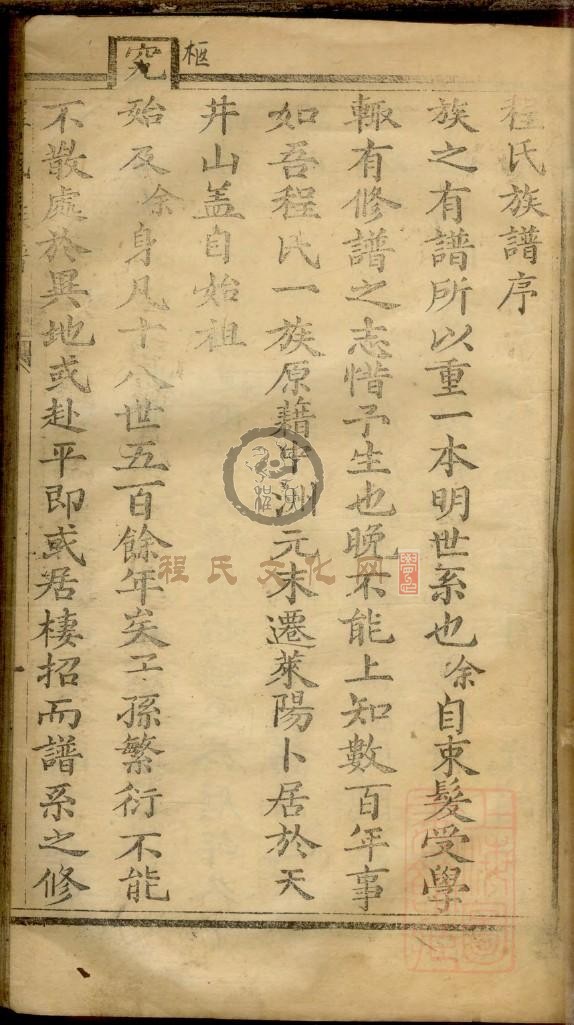 程氏族譜序
族之有譜所以重一本明世系也余自束髮受學
輙有修譜之志惜予生也晚不能上知數百年事
如吾程氏一族原籍中洲元末遷萊陽卜居於天
井山盖自始祖
始及余身凡十八世五百餘年矣子孫繁衍不能
不散處於異地或赴平即或居棲招而譜系之修
樞
究
程氏文化网